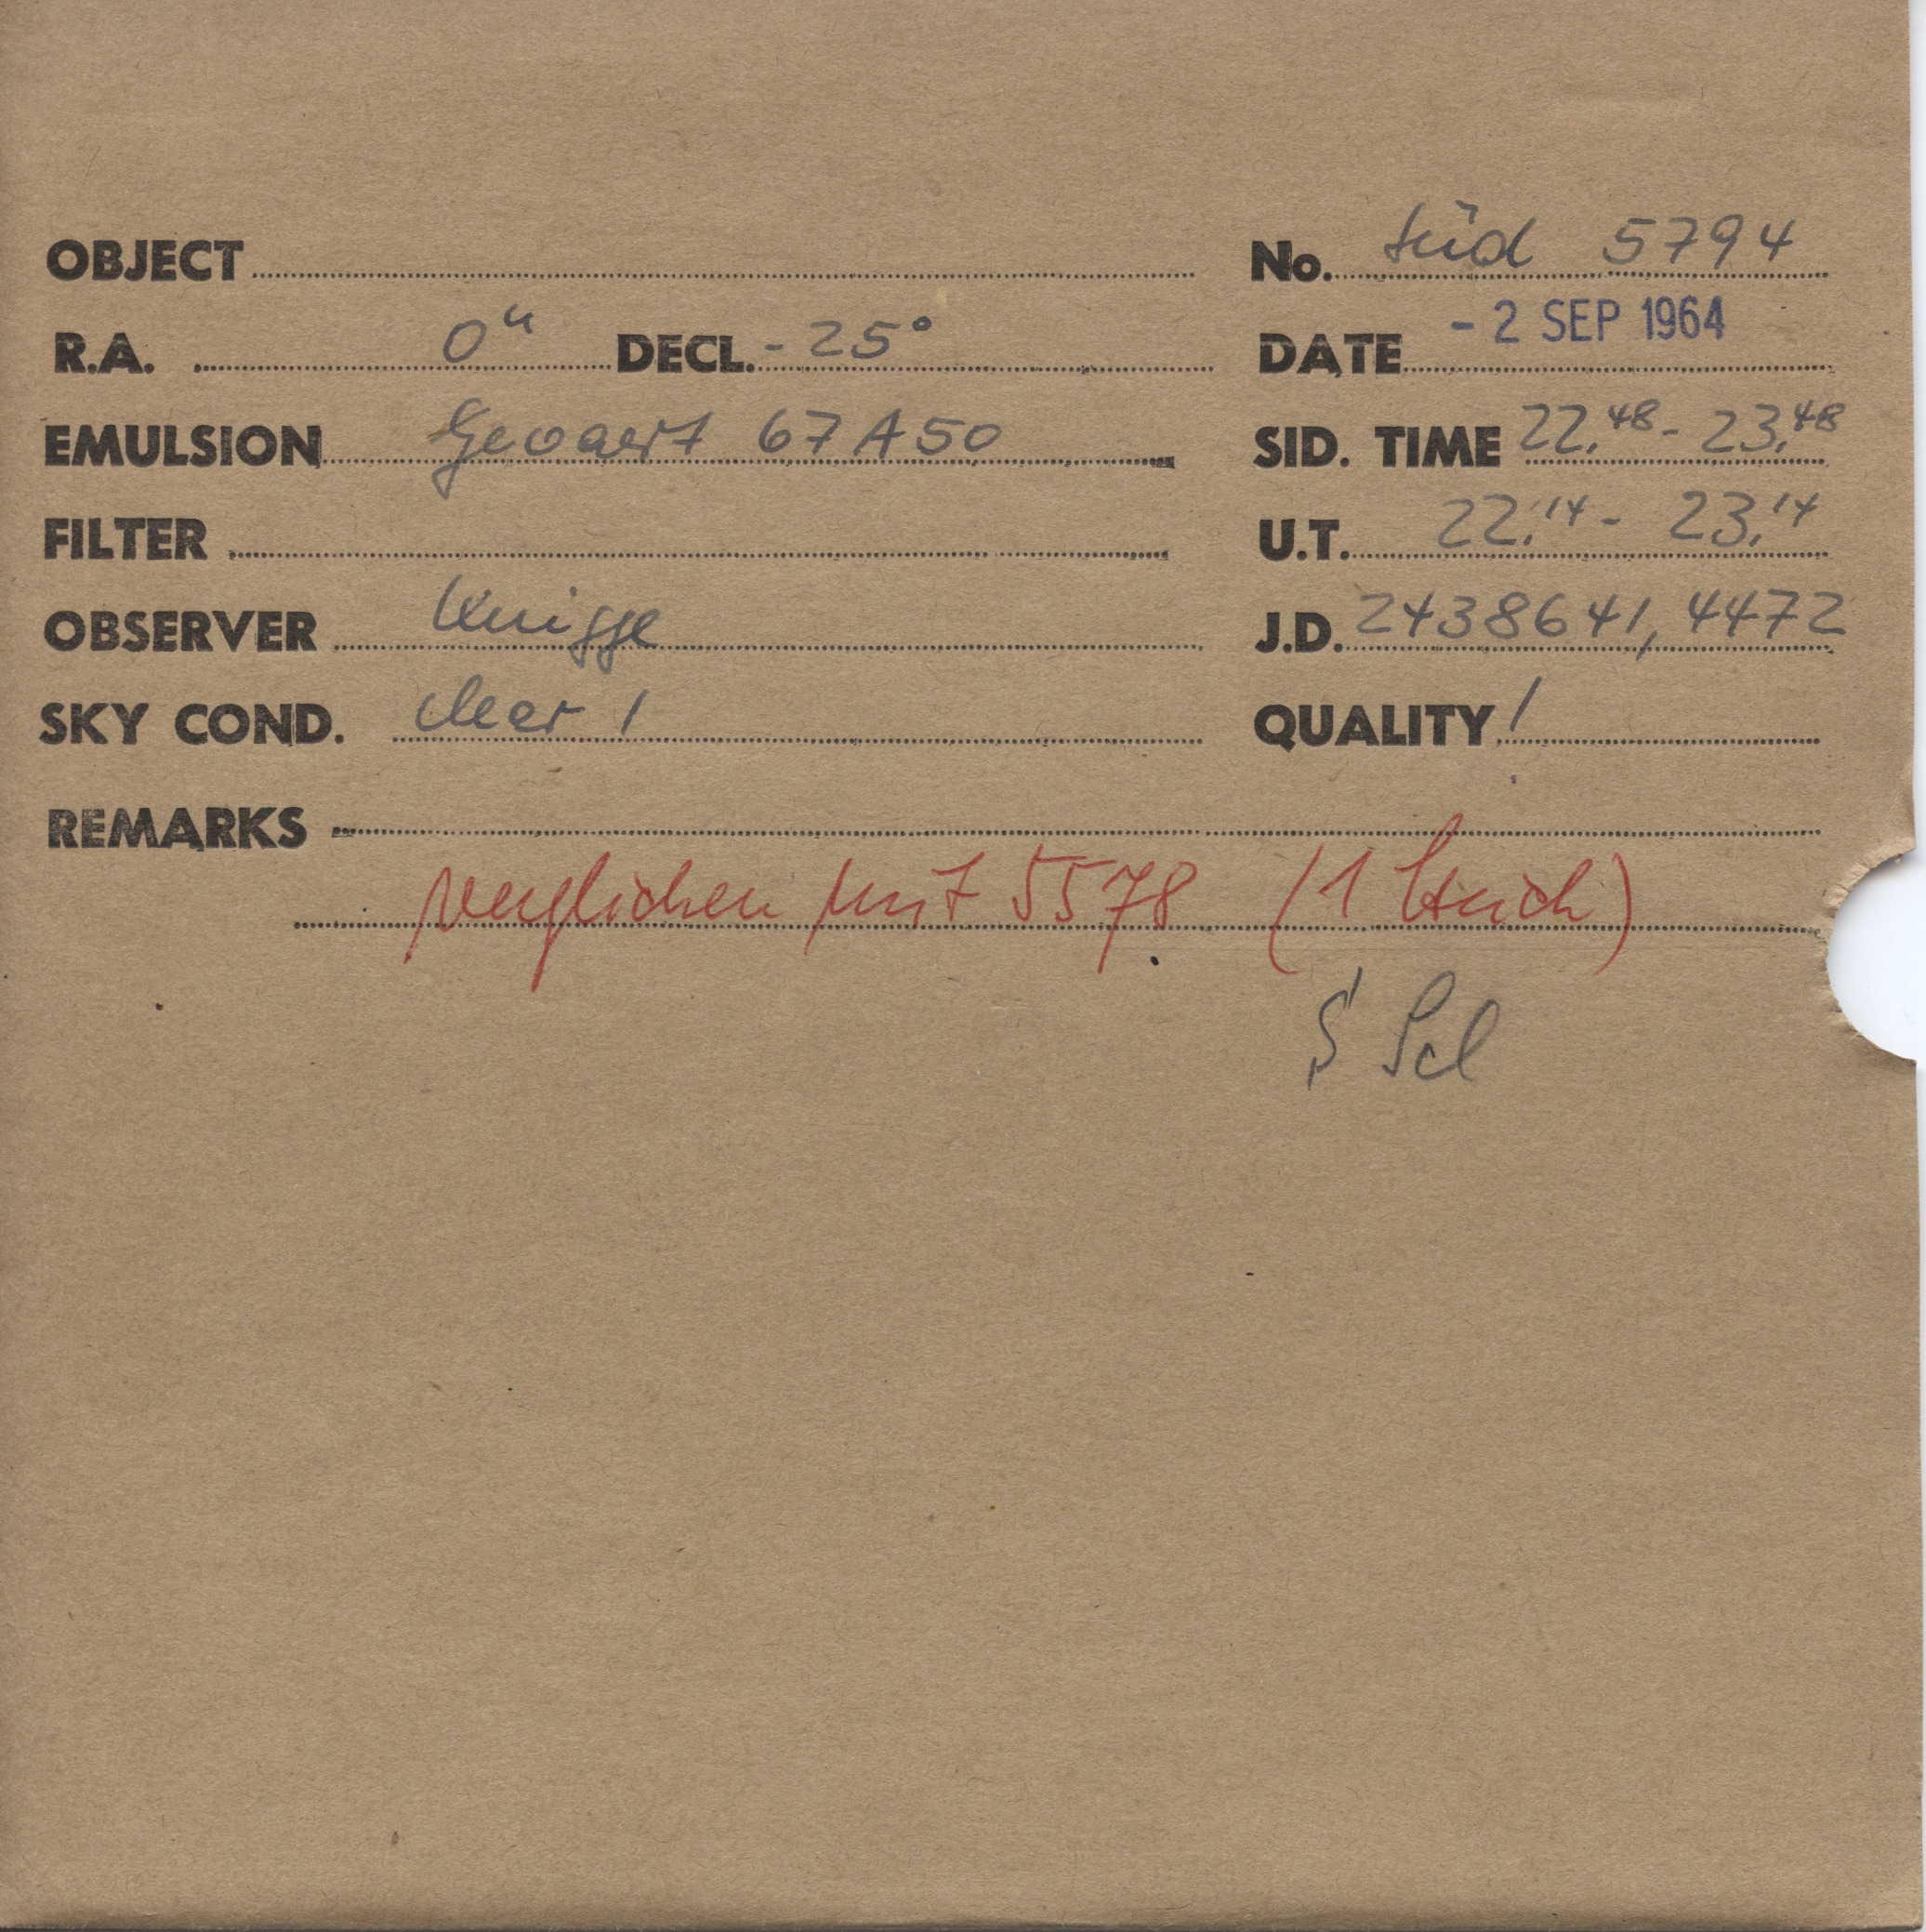 OBJECT No. Süd 5794
R.A. 0ʰ DECL. - 25° DATE - 2 SEP 1964
EMULSION Gevaert 67 A 50 SID. TIME 22.48 - 23.48
FILTER U.T. 22.14 - 23.14
OBSERVER Knigge J.D. 2438641,4472
SKY COND. clear 1 QUALITY 1
REMARKS
verglichen mit 5578 (1 Strich)
S Scl